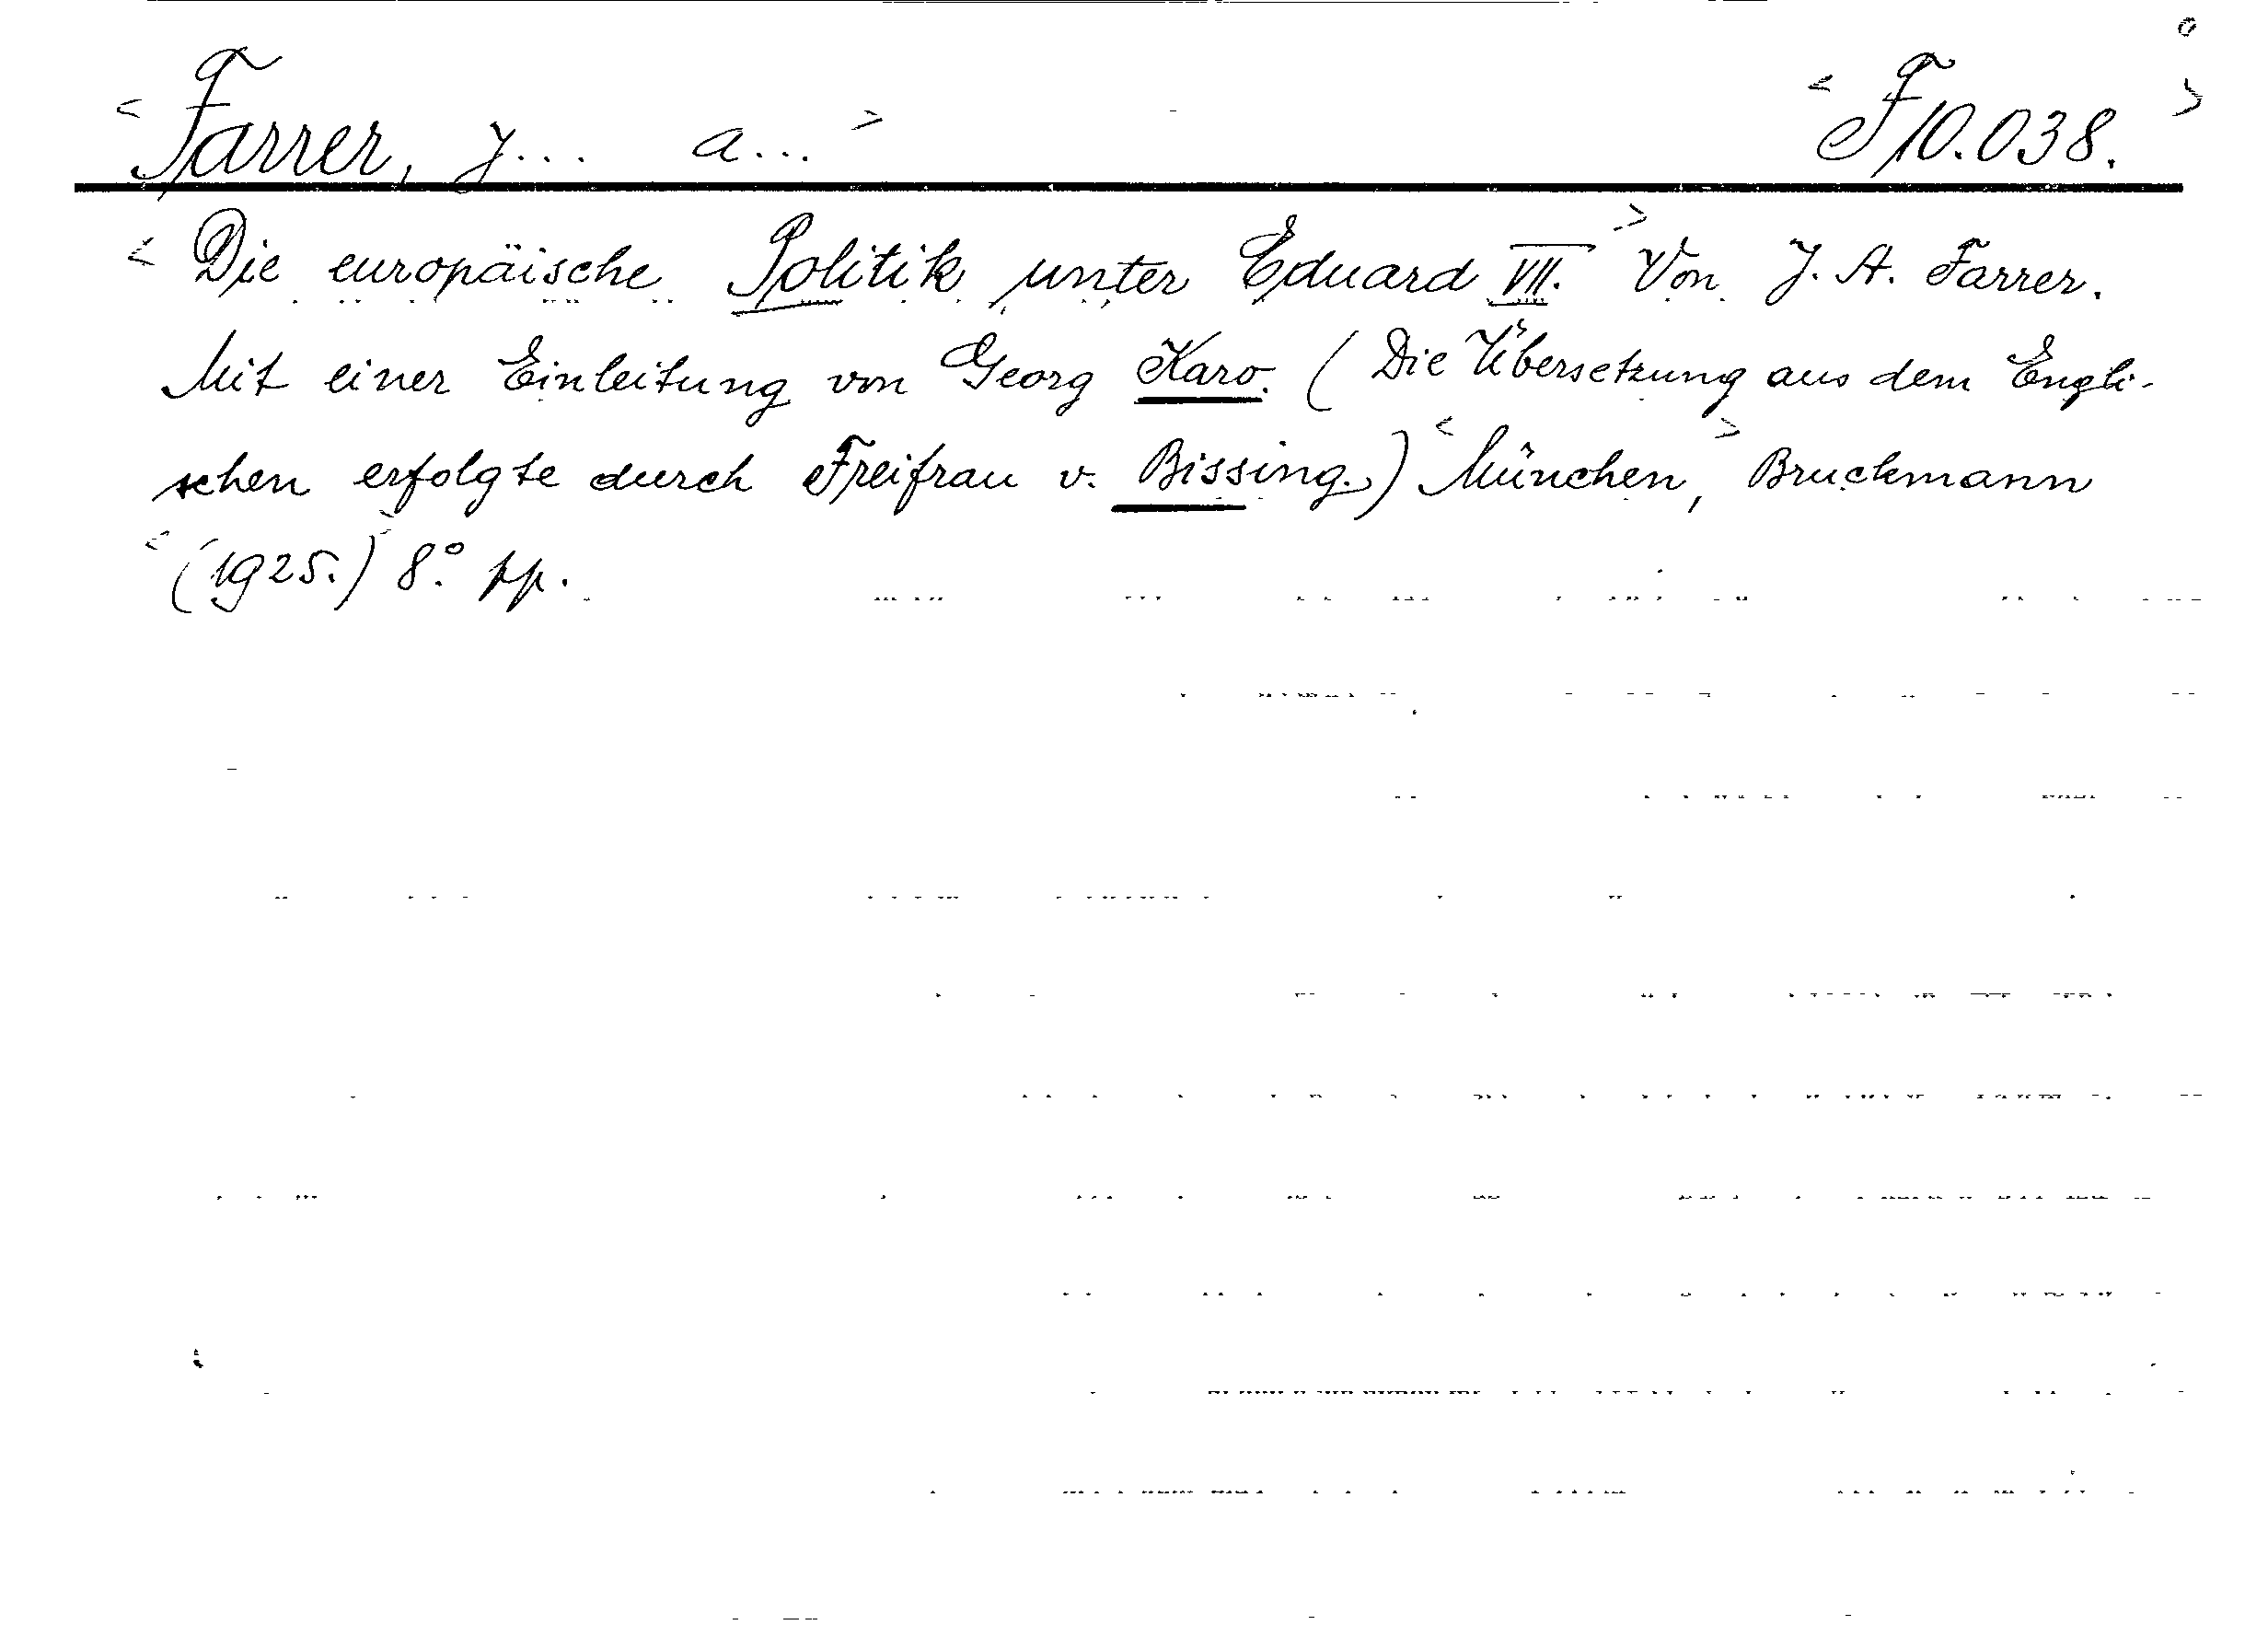 <Farrer, J... A...> <F 10.038.>
<Die europäische Politik unter Eduard VII.> Von J. A. Farrer.
Mit einer Einleitung von Georg Karo. (Die Übersetzung aus dem Engli-
schen erfolgte durch Freifrau v. Bissing.) <München,> Bruckmann
<(1925.)> 8° pp.